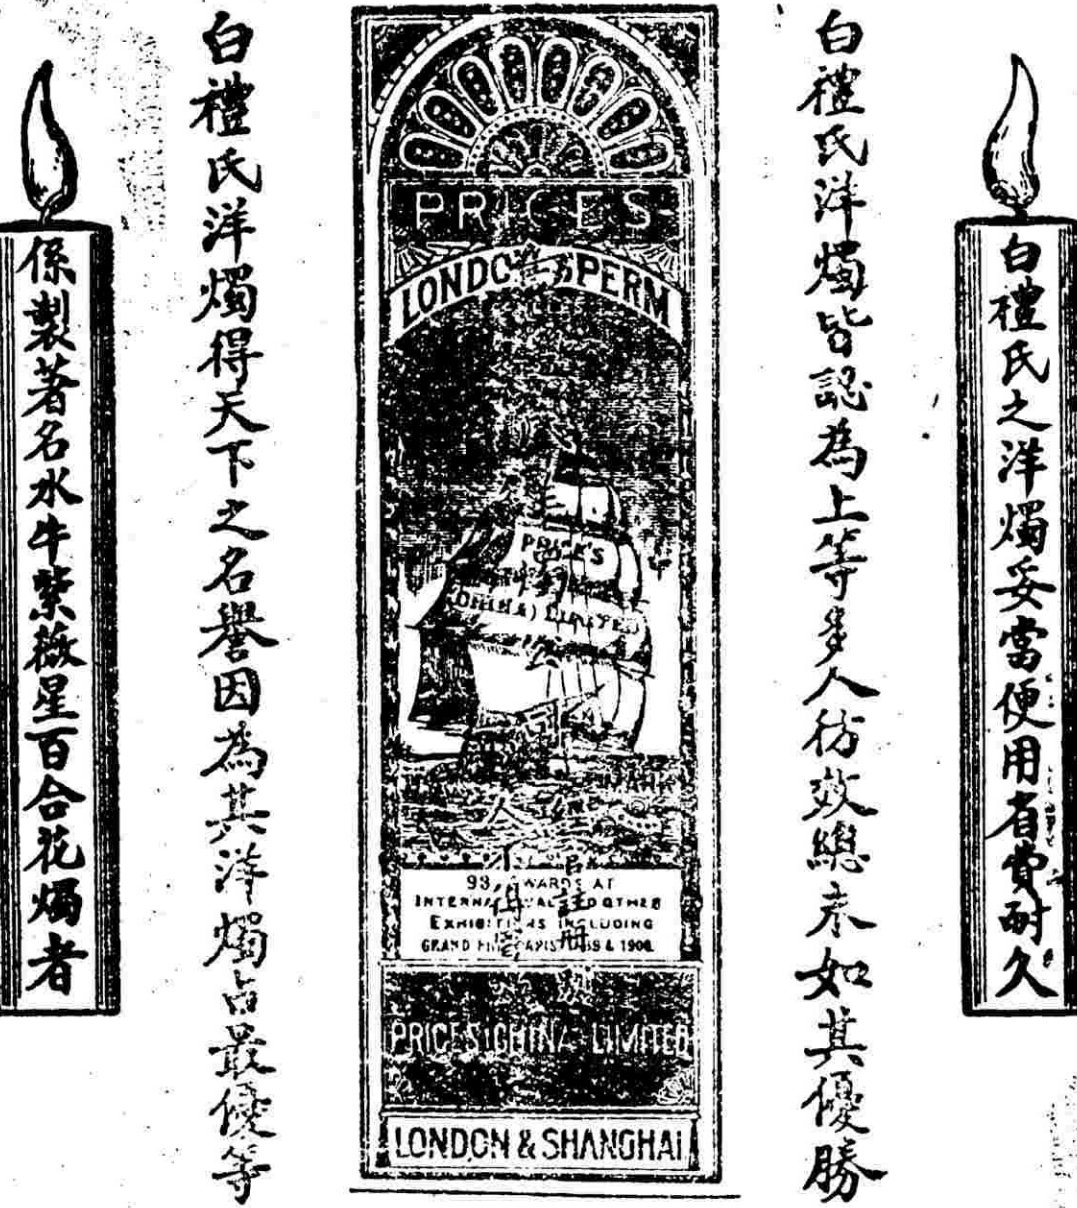 白禮氏之洋燭妥當便用省費耐久
白禮氏洋燭皆認為上等多人彷效總未如其優勝
PRICES
LONDON SPERM
PRICE'S
(CHINA) LIMITED
93 AWARDS AT
INTERNATIONAL AND OTHER
EXHIBITIONS INCLUDING
GRAND PRIX PARIS & 1900.
PRICES (CHINA) LIMITED
LONDON & SHANGHAI
白禮氏洋燭得天下之名譽因為其洋燭占最優等
係製著名水牛紫薇星百合花燭者